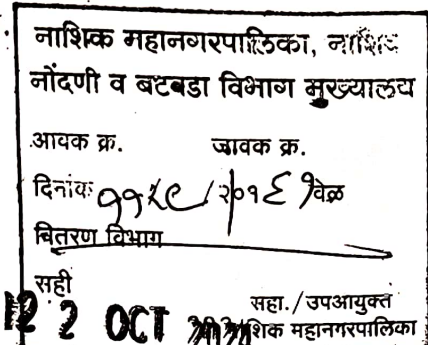 नाशिक महानगरपालिका, नाशिक
नोंदणी व बटवडा विभाग मुख्यालय
आवक क्र. जावक क्र.
दिनांकः वेळ
वितरण विभाग
सही
सहा./उपआयुक्त
2 OCT नाशिक महानगरपालिका